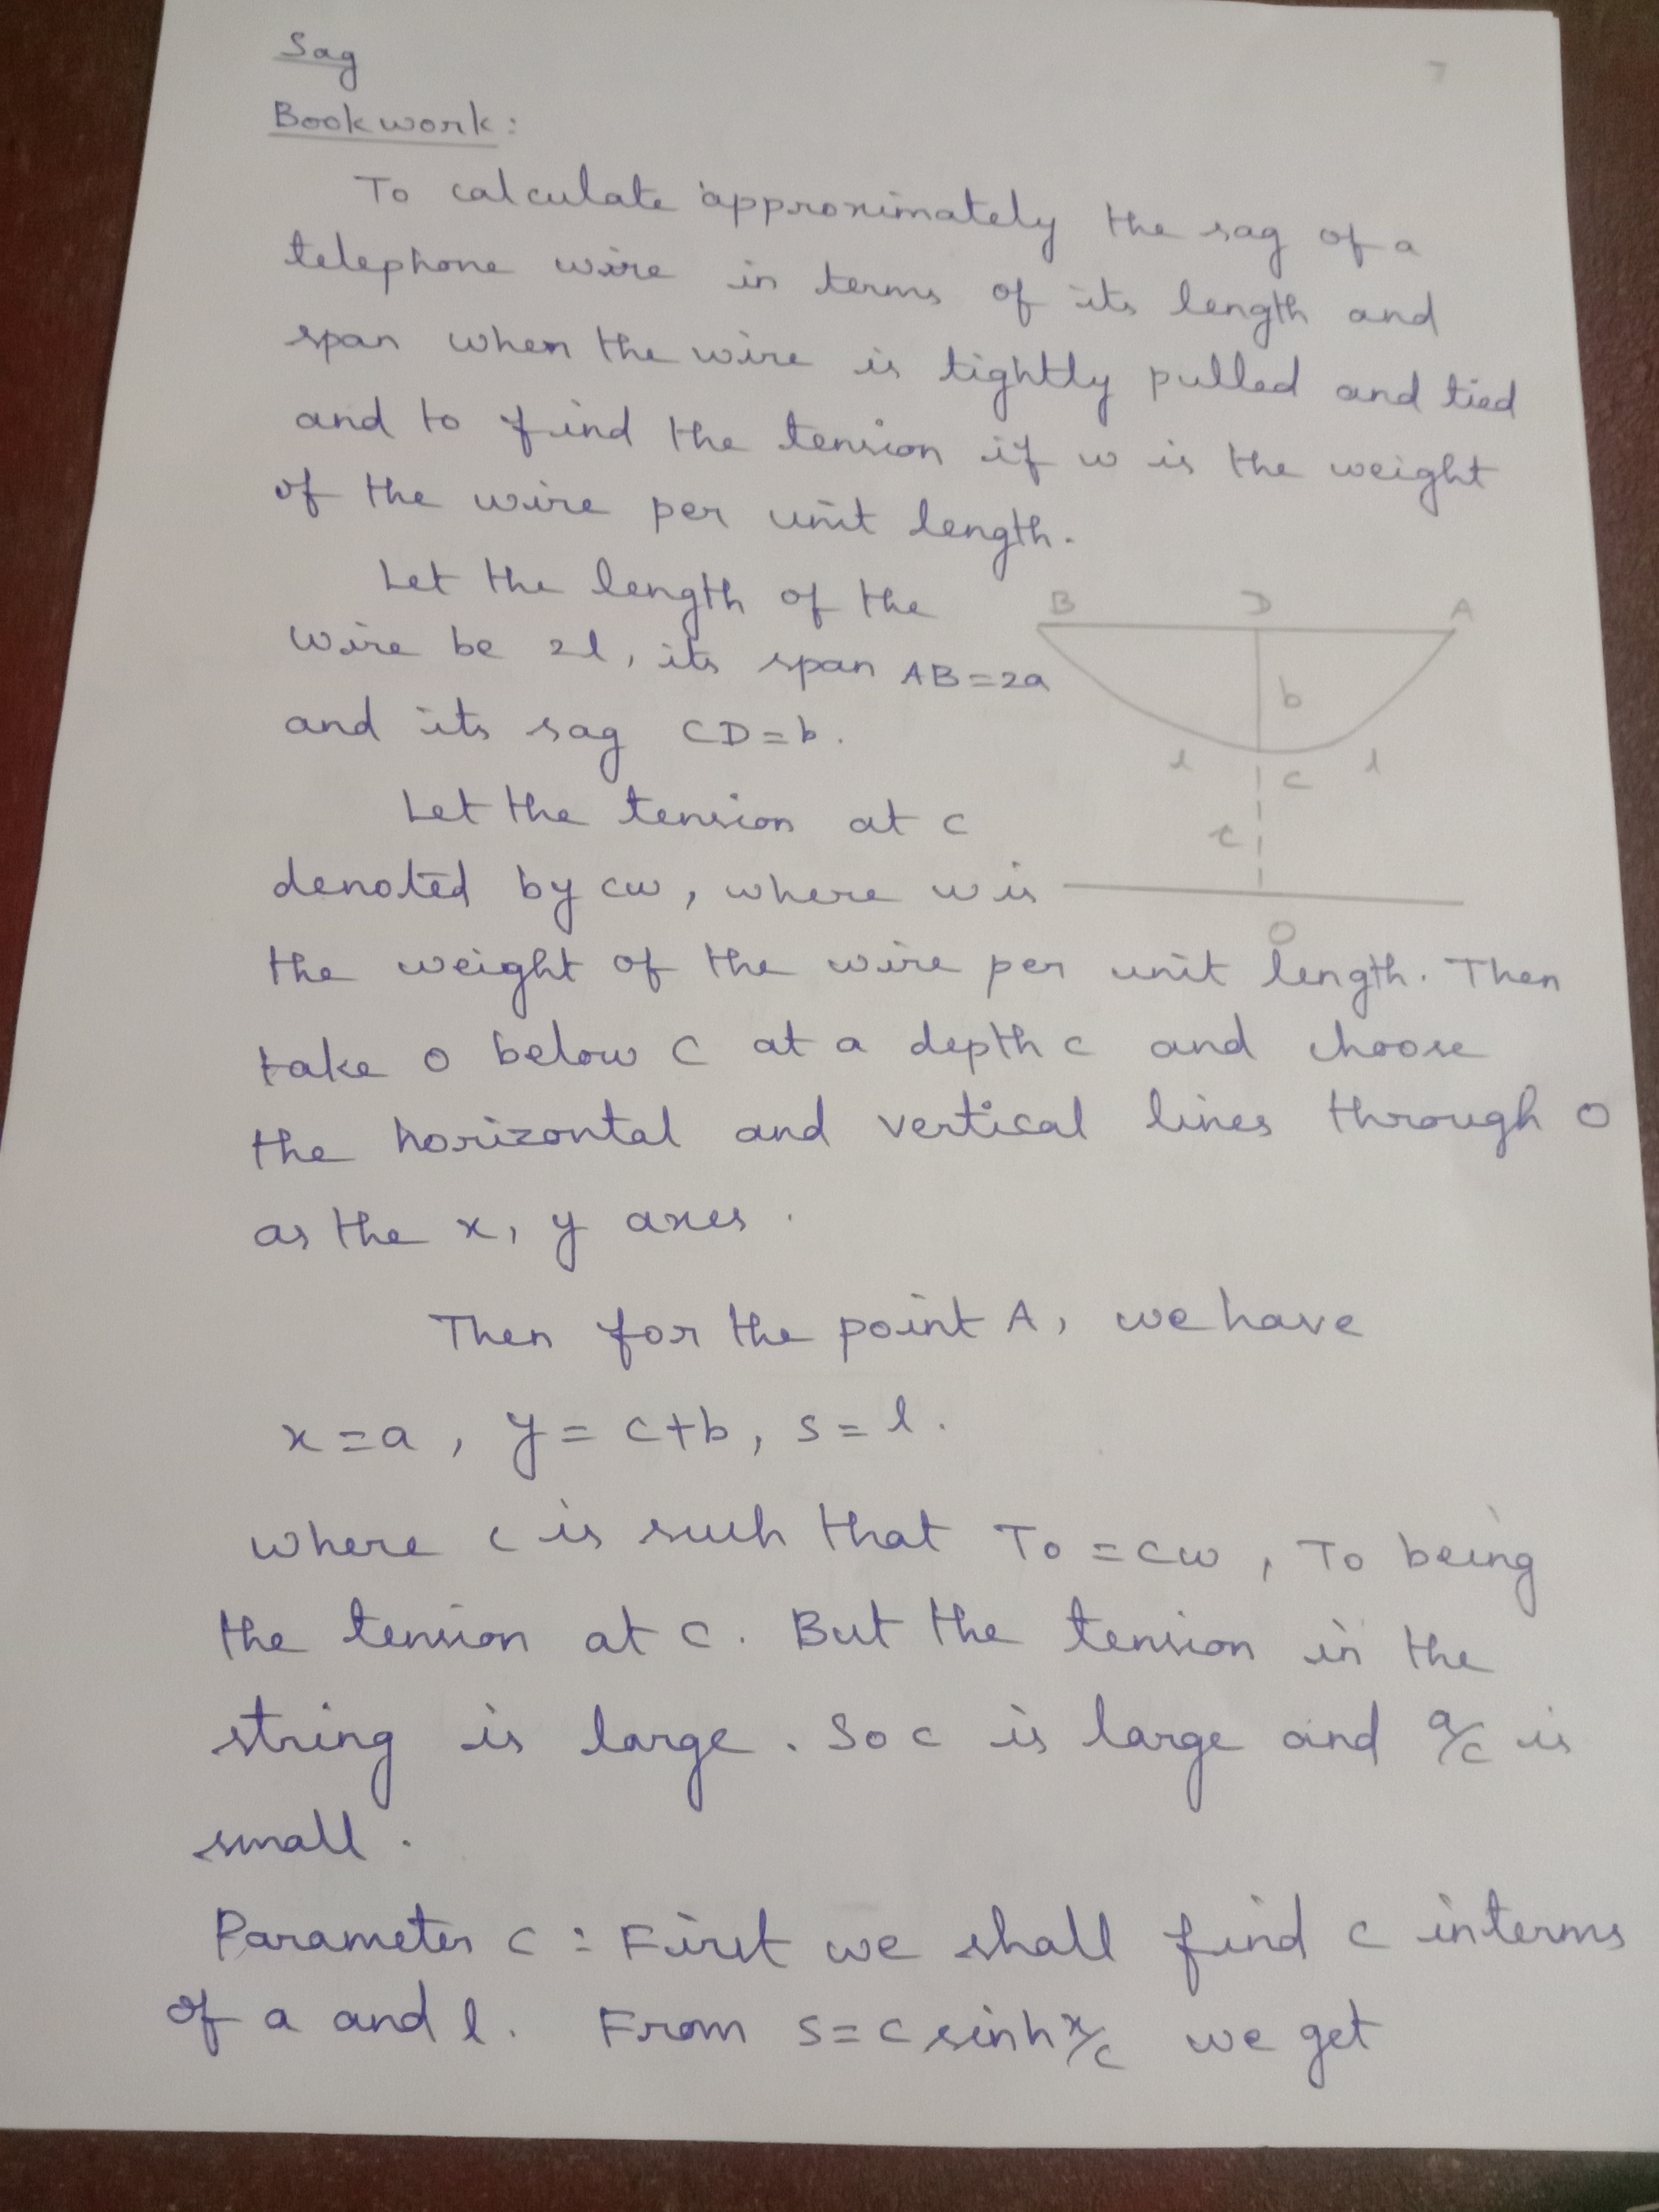 7
Sag
Bookwork:
To calculate approximately the sag of a
telephone wire in terms of its length and
span when the wire is tightly pulled and tied
and to find the tension if w is the weight
of the wire per unit length.
Let the length of the
wire be 2l, its span AB=2a
and its sag CD=b.
B D A
b
l c l
c
O
Let the tension at c
denoted by cw, where w is
the weight of the wire per unit length. Then
take o below C at a depth c and choose
the horizontal and vertical lines through O
as the x, y axes.
Then for the point A, we have
x=a, y=c+b, s=l.
where c is such that To=cw, To being
the tension at c. But the tension in the
string is large. So c is large and a/c is
small.
Parameter c: First we shall find c interms
of a and l. From s=c sinh x/c we get